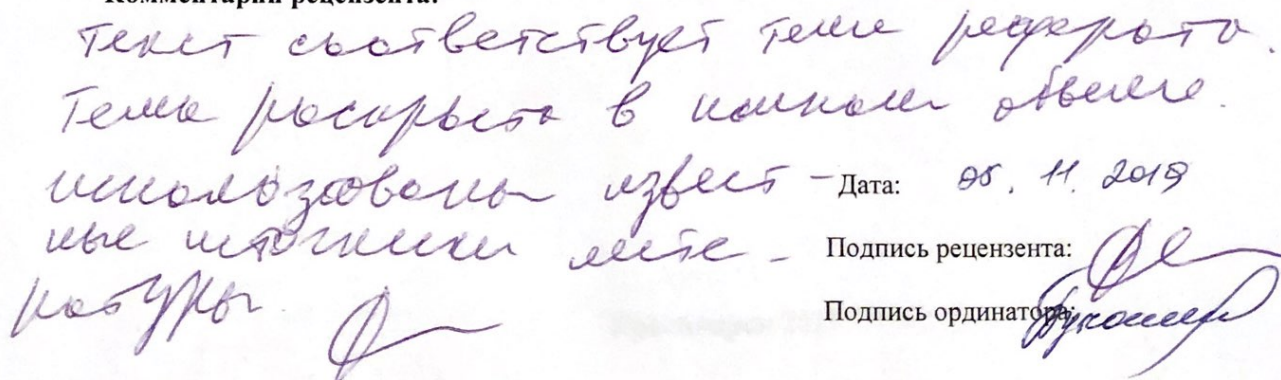 Комментарии рецензента:
Текст соответствует теме реферата.
Тема раскрыта в полном объеме.
использованы извест-
ные источники лите-
ратуры.
Дата: 05. 11. 2019
Подпись рецензента:
Подпись ординатора: